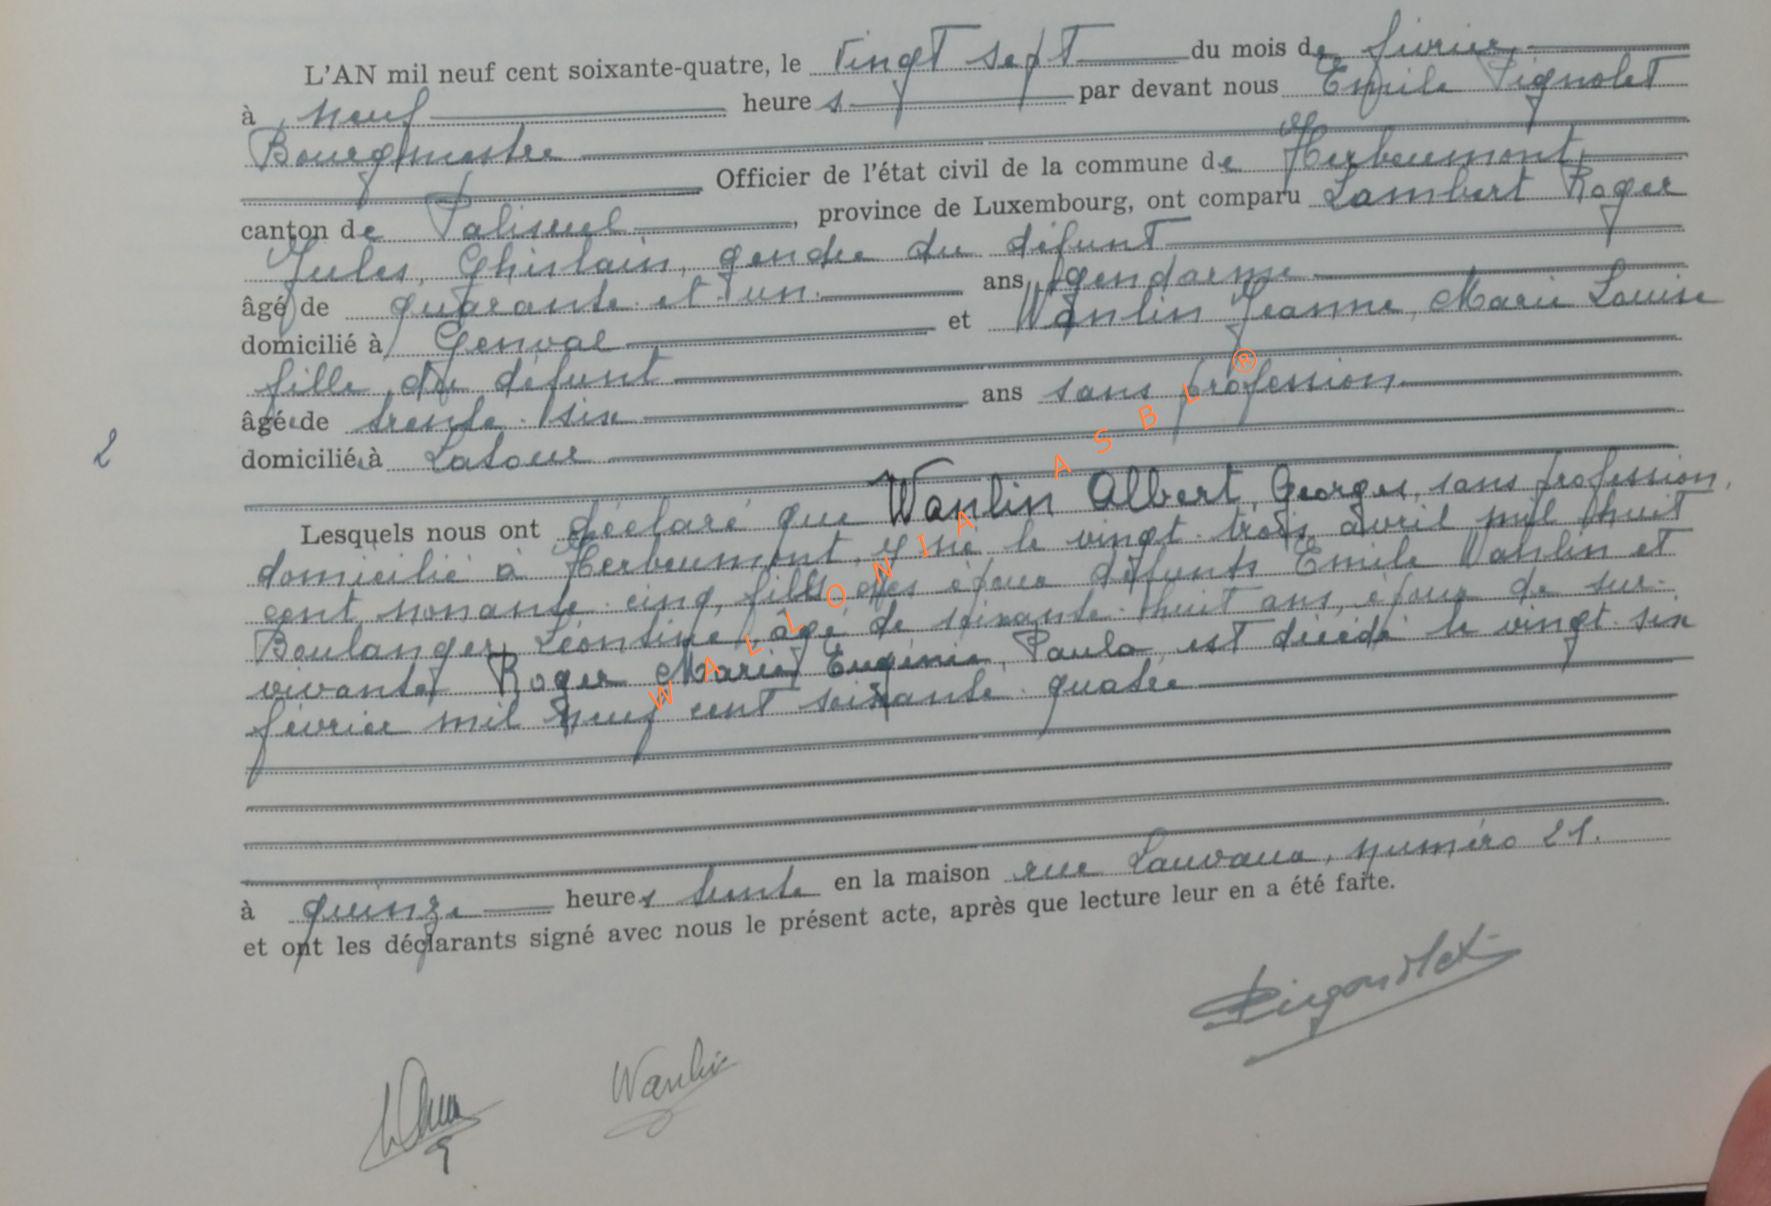 L'AN mil neuf cent soixante-quatre, le Vingt sept du mois de février
à neuf heures par devant nous Emile Pignolet
Bourgmestre
Officier de l'état civil de la commune de Herbeumont,
canton de Paliseul, province de Luxembourg, ont comparu Lambert Roger
Jules, Ghislain, gendre du défunt
âgé de quarante et un ans, gendarme
domicilié à Genval et Wanlin Jeanne, Marie Louise
fille du défunt
âgée de trente six ans sans profession
2 domiciliée à Latour
Lesquels nous ont déclaré que Wanlin Albert, Georges, sans profession,
domicilié à Herbeumont, y né le vingt trois avril mil huit
cent nonante cinq, fils des époux défunts Emile Wanlin et
Boulanger Léontine, âgé de soixante huit ans, époux de sur-
vivante Roger Marie, Eugénie, Paula, est décédé le vingt six
février mil neuf cent soixante quatre
à quinze heures trente en la maison rue Lauvaux, numéro 21.
et ont les déclarants signé avec nous le présent acte, après que lecture leur en a été faite.
Wanlin
WALLONIA ASBL ®